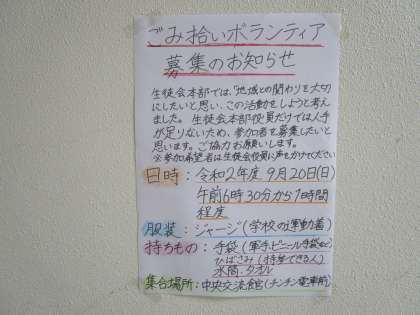 ごみ拾いボランティア
募集のお知らせ
生徒会本部では、「地域との関わりを大切
にしたいと思い、この活動をしようと考え
ました。生徒会本部役員だけでは人手
が足りないため、参加者を募集したいと
思います。ご協力お願いします。
※参加希望者は生徒会役員に声をかけてください
日時：令和2年度 9月20日(日)
午前6時30分から1時間
程度
服装：ジャージ(学校の運動着)
持ちもの：手袋(軍手、ビニール手袋など)
ひばさみ(持参できる人)
水筒、タオル
集合場所：中央交流館(チンチン電車前)